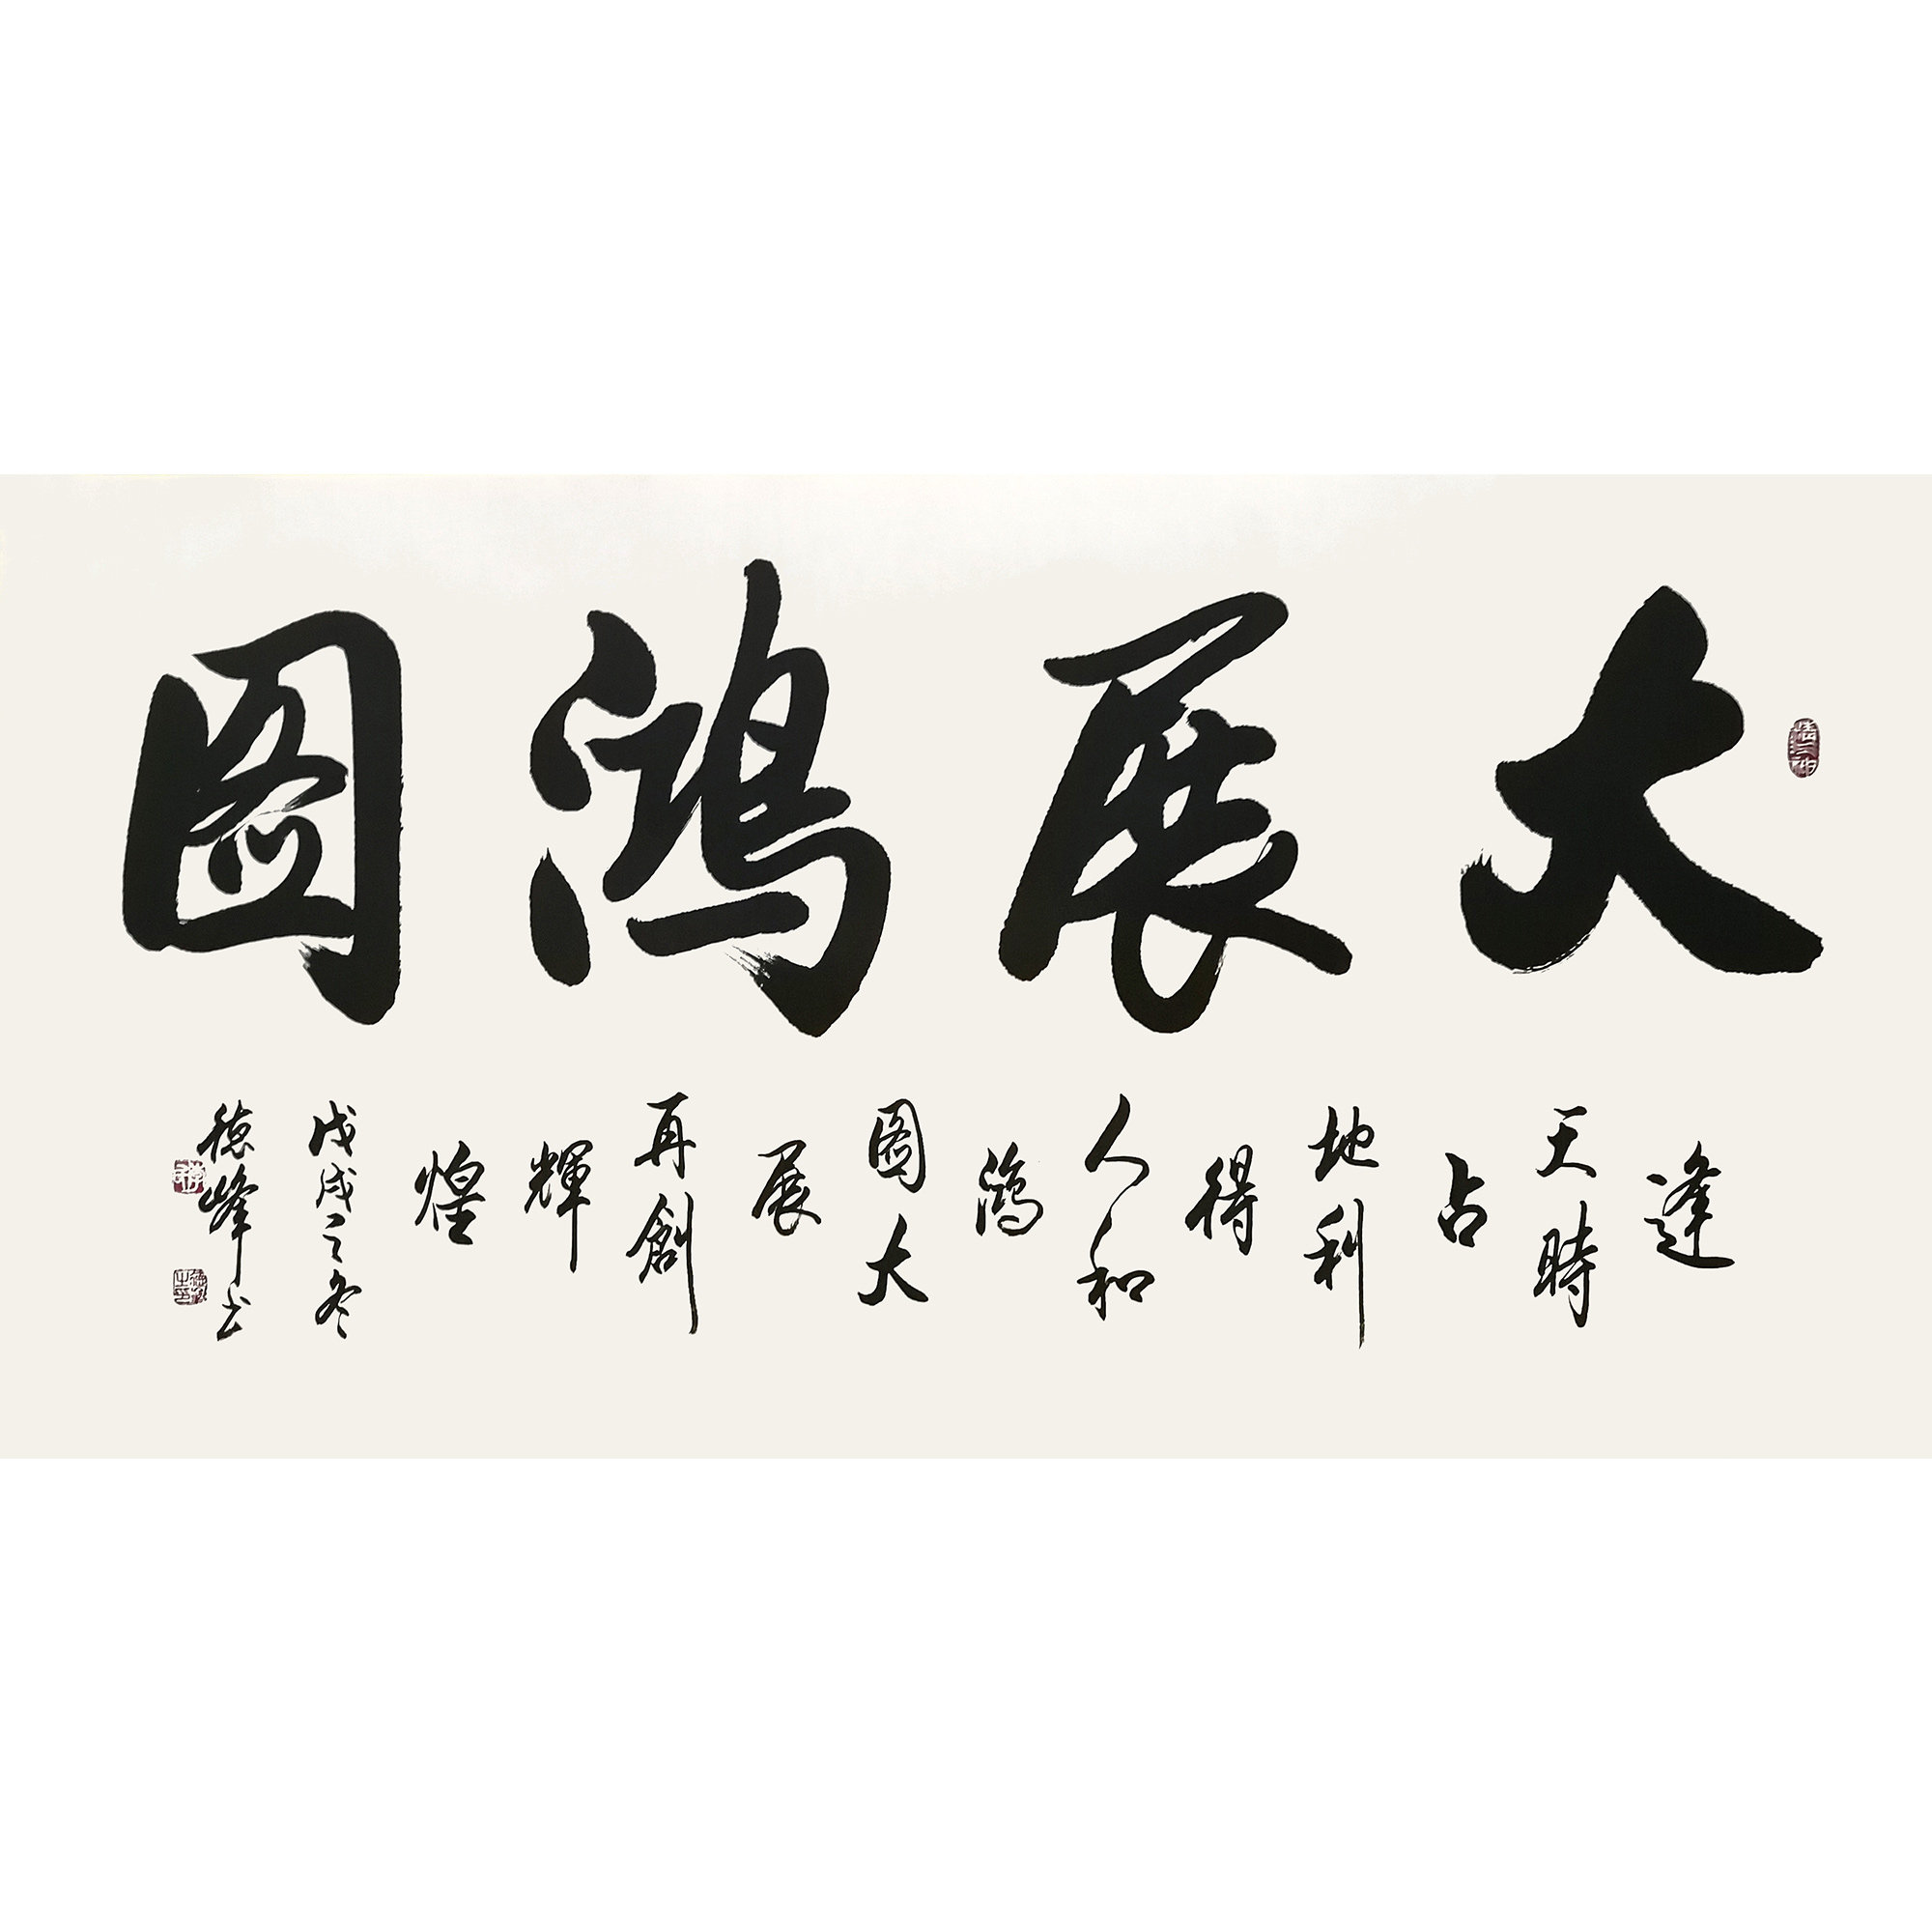 大展鴻圖
逢
天時
占
地利
得
人和
鴻
圖大
展
再創
輝
煌
戊戌之冬
德峰书